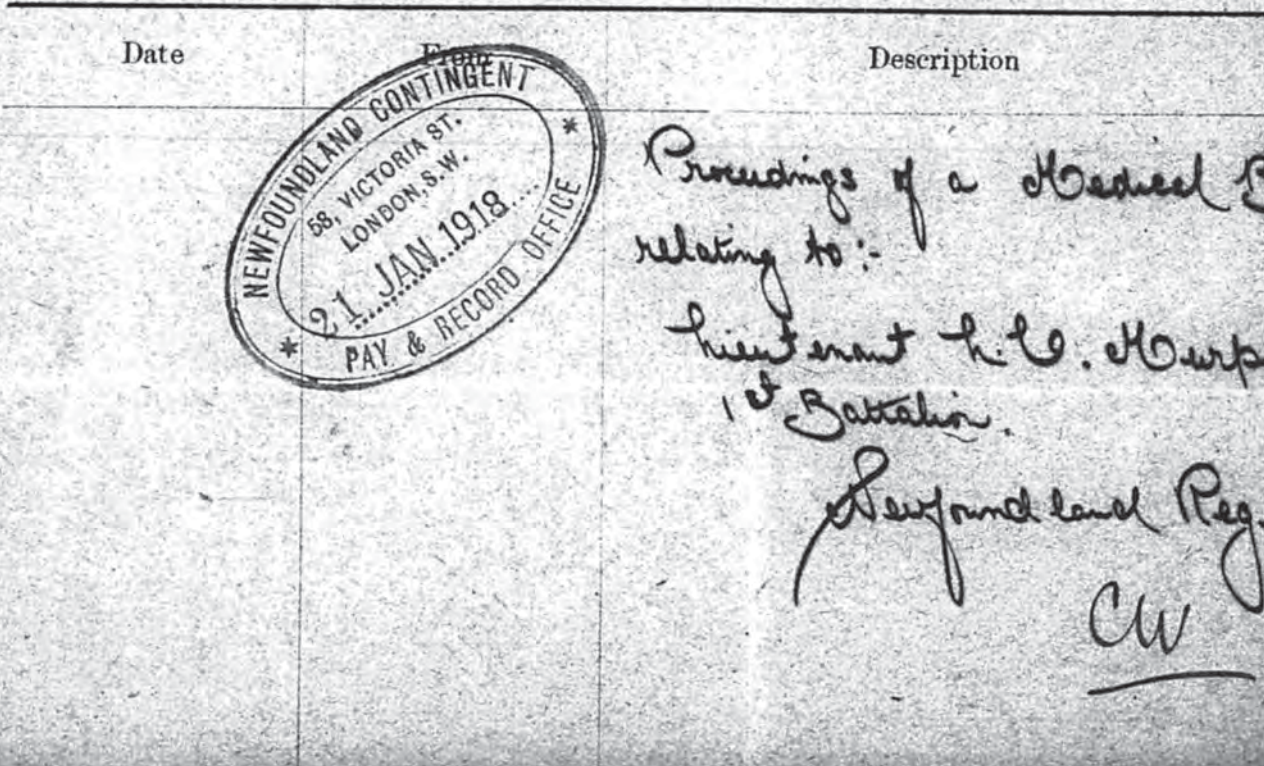 Date From Description
NEWFOUNDLAND CONTINGENT
58, VICTORIA ST.
LONDON, S.W.
21 JAN. 1918
PAY & RECORD OFFICE
Proceedings of a Medical B
relating to:-
Lieutenant L.C. Murp
1st Battalion.
Newfoundland Reg.
CW